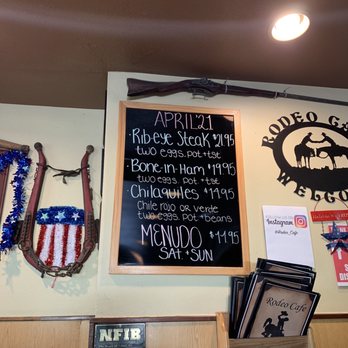 APRIL 21
· Rib-eye Steak $21.95
two eggs. pot + tst
· Bone-in-Ham $19.95
two eggs. pot + tst
· Chilaquiles $14.95
Chile rojo or verde
two eggs. pot + beans
MENUDO $14.95
SAT + SUN
RODEO
WELCOME
Instagram
@Rodeo_Cafe
NFIB
Rodeo Cafe